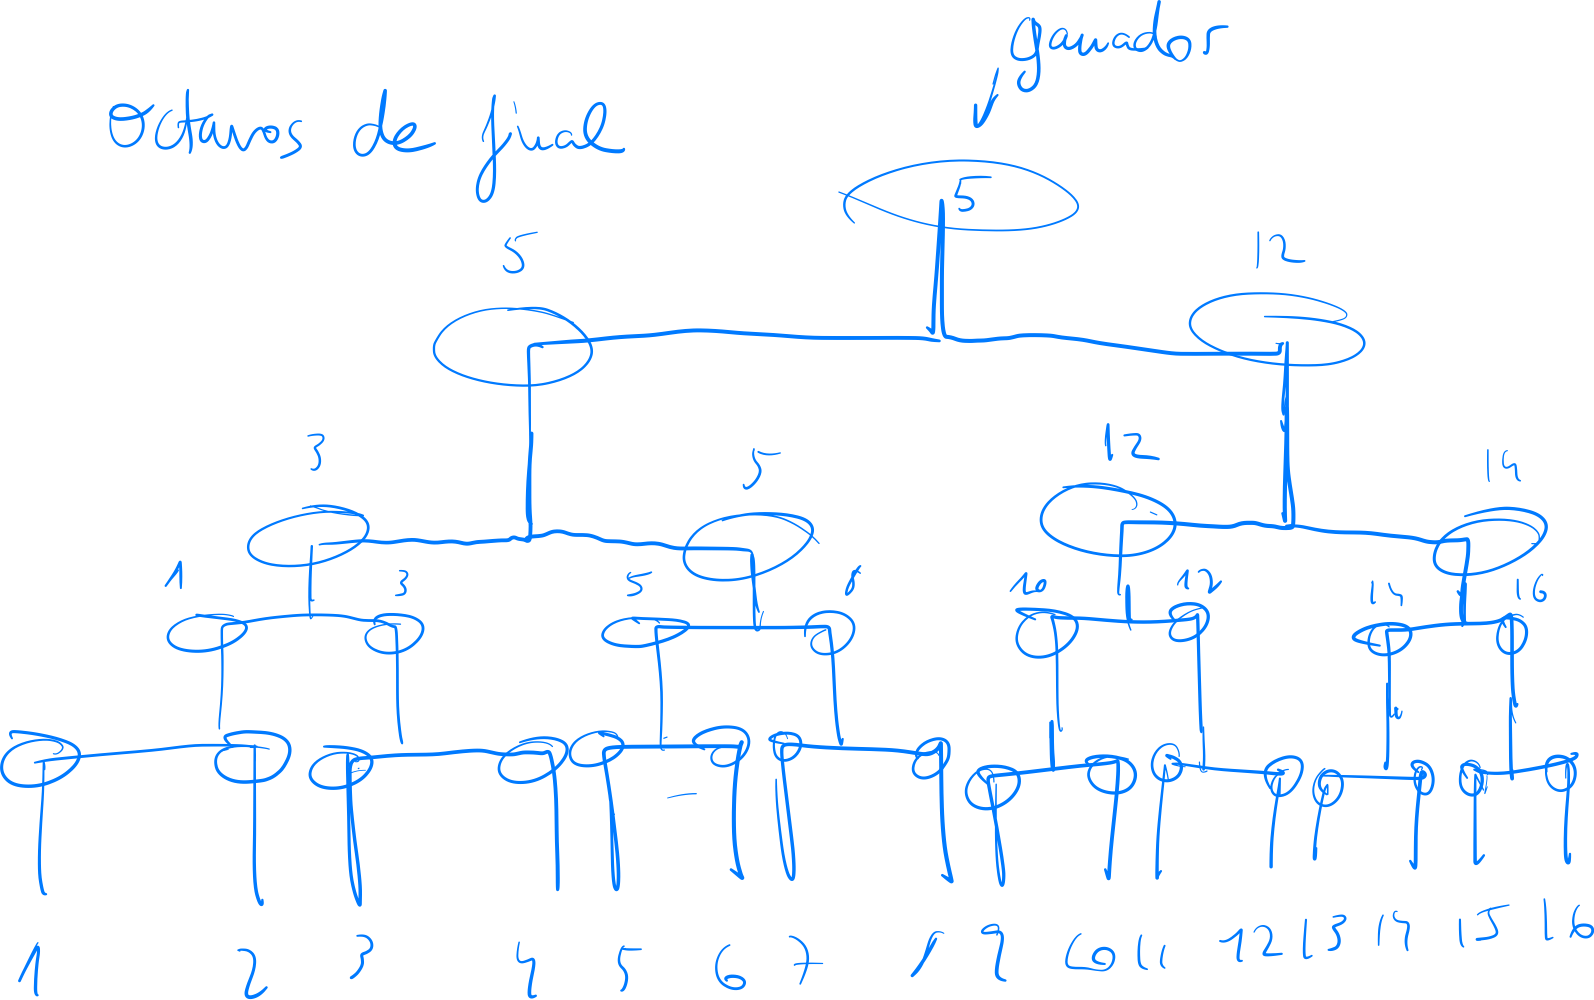 ganador
Octavos de final
5
5 12
3 5 12 14
1 3 5 8 10 12 14 16
1 2 3 4 5 6 7 8 9 10 11 12 13 14 15 16